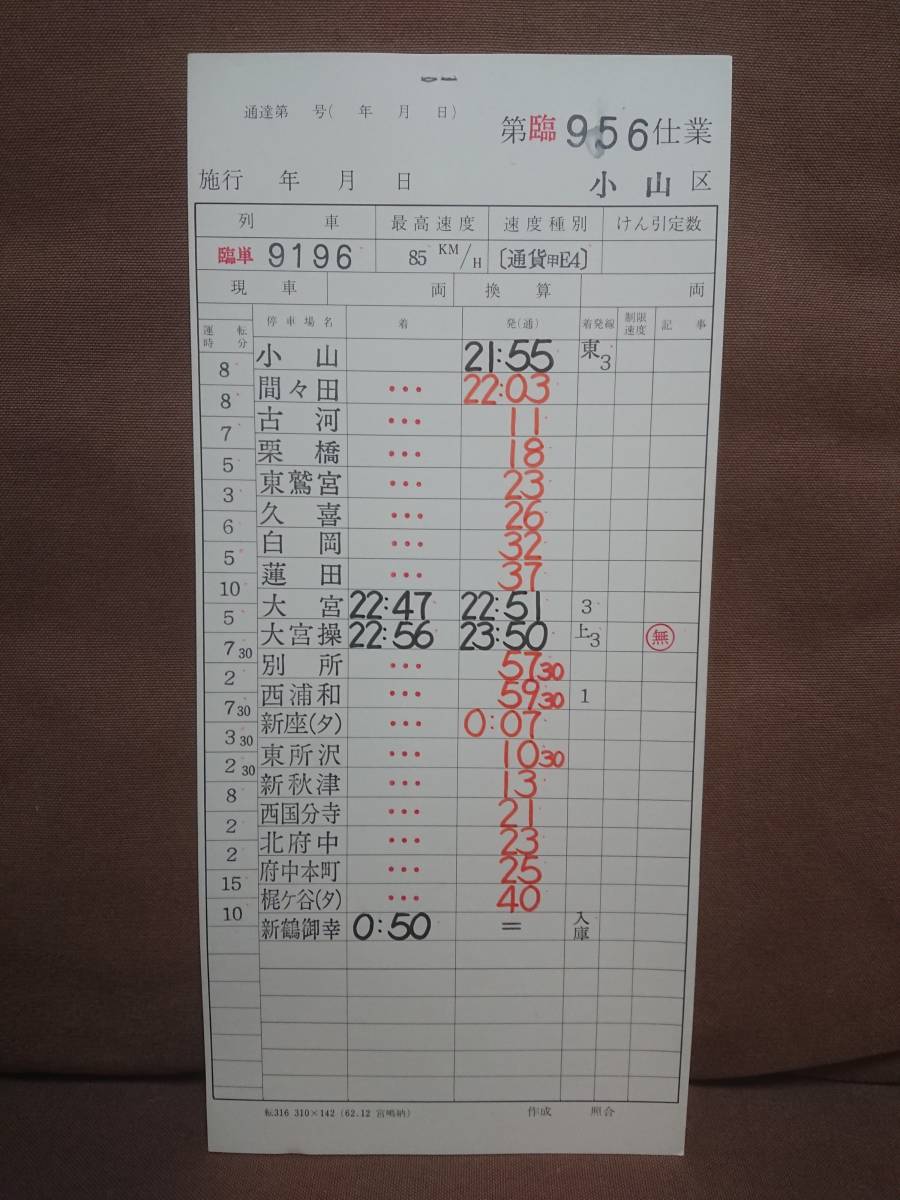 通達第 号( 年 月 日)
第臨956仕業
施行 年 月 日 小山区
列車 最高速度 速度種別 けん引定数
臨単 9196 85 KM/H 〔通貨甲E4〕
現車 両 換算 両
運転時分 停車場名 着 発(通) 着発線 制限速度 記事
小山 21:55 東3
8
間々田 ••• 22:03
8
古河 ••• 11
7
栗橋 ••• 18
5
東鷲宮 ••• 23
3
久喜 ••• 26
6
白岡 ••• 32
5
蓮田 ••• 37
10
大宮 22:47 22:51 3
5
大宮操 22:56 23:50 上3 無
7 30
別所 ••• 57 30
2
西浦和 ••• 59 30 1
7 30
新座(タ) ••• 0:07
3 30
東所沢 ••• 10 30
2 30
新秋津 ••• 13
8
西国分寺 ••• 21
2
北府中 ••• 23
2
府中本町 ••• 25
15
梶ケ谷(タ) ••• 40
10
新鶴御幸 0:50 = 入庫
転316 310×142 (62.12 宮嶋納) 作成 照合